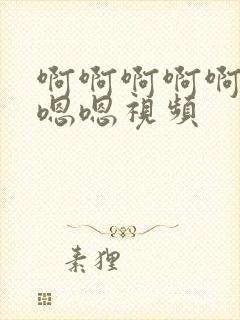 啊啊啊啊啊
嗯嗯視頻
素狸